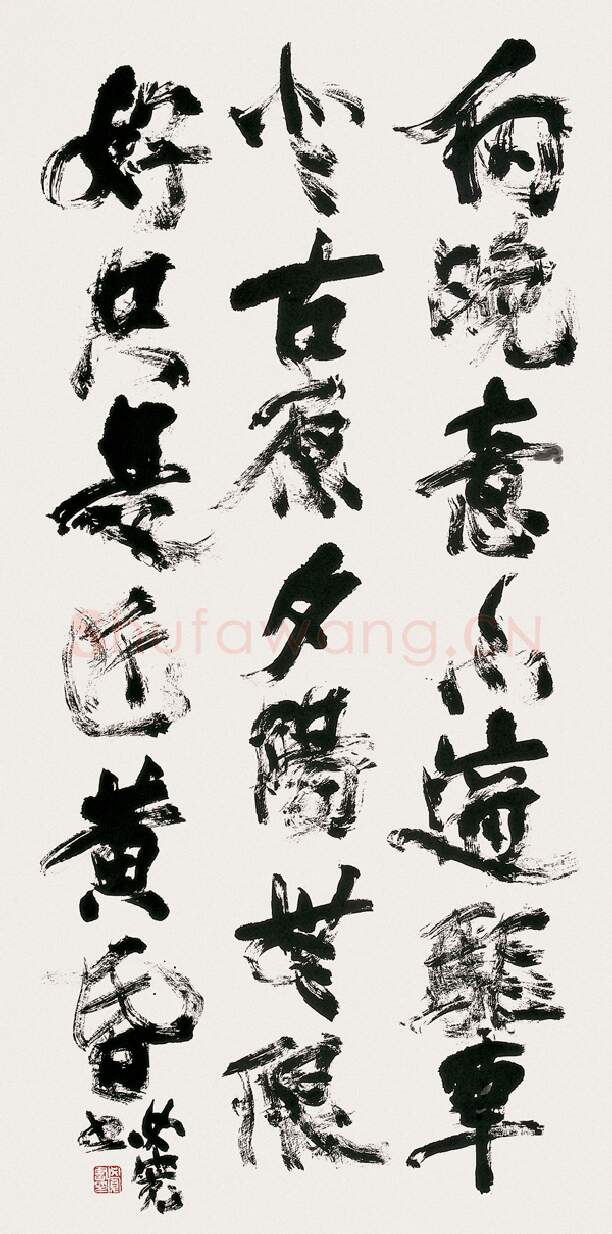 向晚意不適驅車
登古原夕陽無限
好只是近黃昏
Shufawang.CN